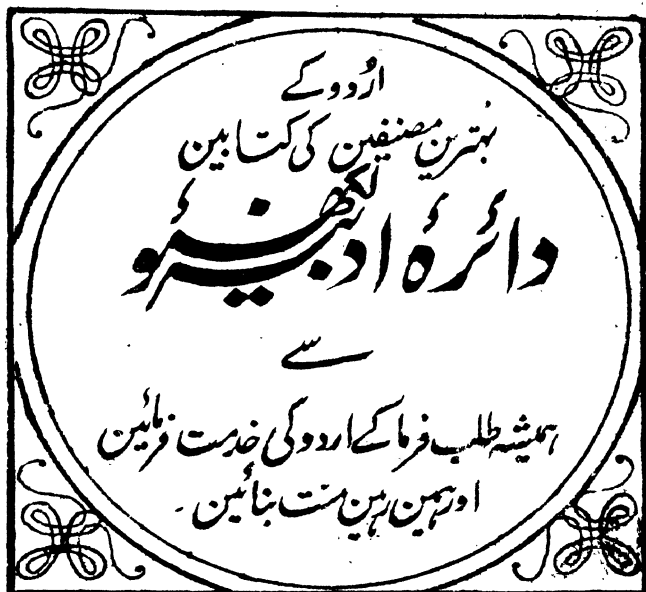 اُردو کے
بہترین مصنفین کی کتابین
دائرۂ ادبیہ لکھنؤ
سے
ہمیشہ طلب فرما کے اردو کی خدمت فرمائین
اور ہمین رہین منت بنائین ۔